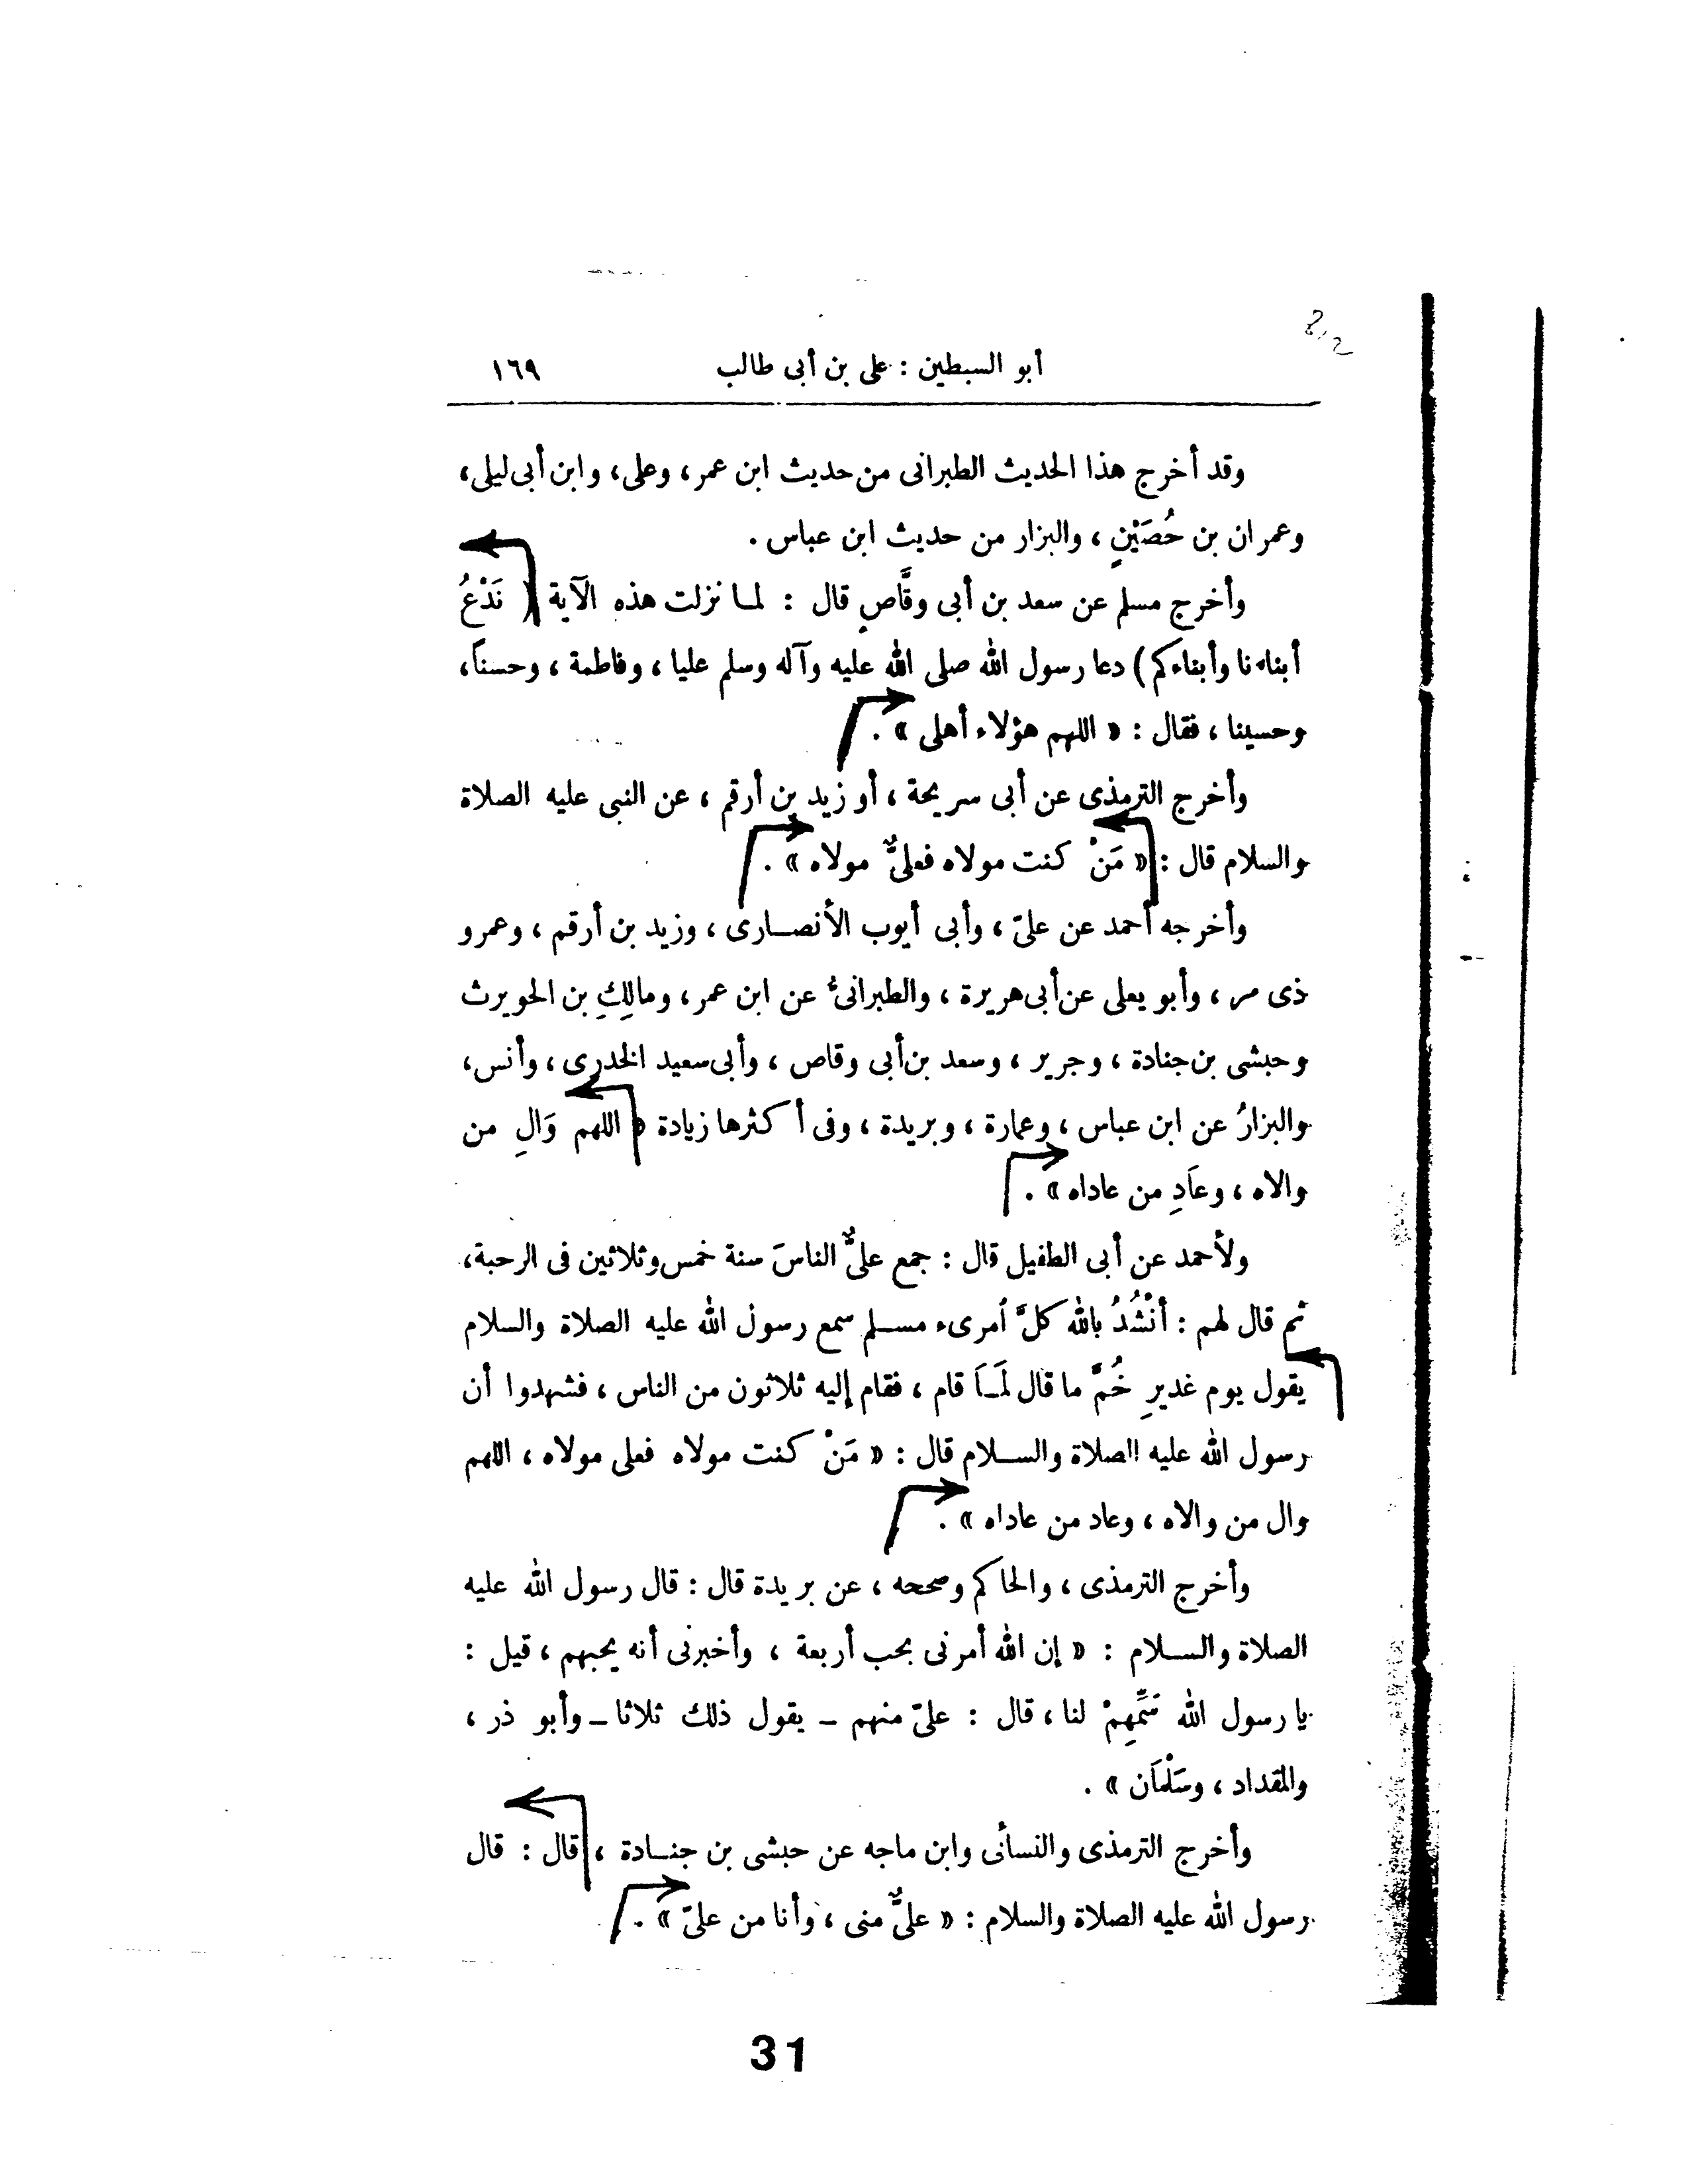 أبو السبطين : على بن أبى طالب ١٦٩
وقد أخرج هذا الحديث الطبرانى من حديث ابن عمر، وعلى، وابن أبى ليلى،
وعمران بن حُصَيْنٍ ، والبزار من حديث ابن عباس .
وأخرج مسلم عن سعد بن أبى وقَّاصٍ قال : لما نزلت هذه الآية ( نَدْعُ
أبناءنا وأبناءكم) دعا رسول الله صلى الله عليه وآله وسلم عليا ، وفاطمة ، وحسناً،
وحسينا ، فقال : « اللهم هؤلاء أهلى » .
وأخرج الترمذى عن أبى سريحة ، أو زيد بن أرقم ، عن النبى عليه الصلاة
والسلام قال : « مَنْ كنت مولاه فعلىٌّ مولاه » .
وأخرجه أحمد عن علىّ ، وأبى أيوب الأنصارى ، وزيد بن أرقم ، وعمرو
ذى مر ، وأبو يعلى عن أبى هريرة ، والطبرانىُّ عن ابن عمر، ومالِكِ بن الحويرث
وحبشى بن جنادة ، وجرير ، وسعد بن أبى وقاص ، وأبى سعيد الخدرى ، وأنس،
والبزارُ عن ابن عباس ، وعمارة ، وبريدة ، وفى أكثرها زيادة « اللهم وَالِ من
والاه ، وعَادِ من عاداه » .
ولأحمد عن أبى الطفيل قال : جمع علىٌّ الناسَ سنة خمس وثلاثين فى الرحبة،
ثم قال لهم : أنْشُدُ بالله كلَّ أمرىء مسلم سمع رسول الله عليه الصلاة والسلام
يقول يوم غديرِ خُمَّ ما قال لَمَـا قام ، فقام إليه ثلاثون من الناس ، فشهدوا أن
رسول الله عليه الصلاة والسلام قال : « مَنْ كنت مولاه فعلى مولاه ، اللهم
وال من والاه ، وعاد من عاداه » .
وأخرج الترمذى ، والحاكم وصححه ، عن بريدة قال : قال رسول الله عليه
الصلاة والسلام : « إن الله أمرنى بحب أربعة ، وأخبرنى أنه يحبهم ، قيل :
يا رسول الله سَمِّهِمْ لنا ، قال : علىّ منهم – يقول ذلك ثلاثا – وأبو ذر ،
والمقداد ، وسَلْمَان » .
وأخرج الترمذى والنسائى وابن ماجه عن حبشى بن جنادة ، قال : قال
رسول الله عليه الصلاة والسلام : « علىٌّ منى ، وأنا من علىّ » .
31